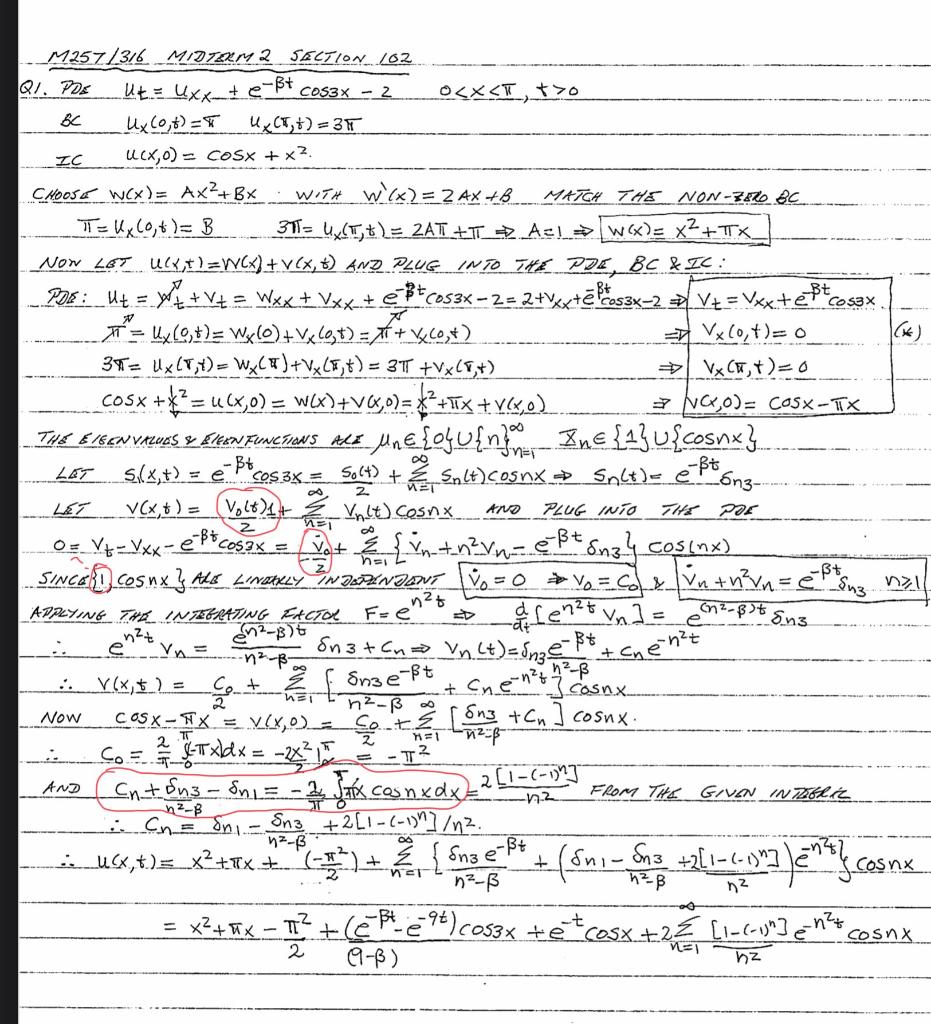 M257/316 MIDTERM 2 SECTION 102
Q1. PDE u_t = u_xx + e^{-βt} cos3x - 2 0<x<π, t>0
BC u_x(0,t)=π u_x(π,t)=3π
IC u(x,0) = cosx + x².
CHOOSE w(x)= Ax²+Bx WITH w'(x) = 2Ax+B MATCH THE NON-ZERO BC
π = u_x(0,t) = B 3π = u_x(π,t) = 2Aπ+π ⇒ A=1 ⇒ w(x) = x²+πx
NOW LET u(x,t)=w(x)+v(x,t) AND PLUG INTO THE PDE, BC & IC:
PDE: u_t = w_t + v_t = w_xx + v_xx + e^{-βt}cos3x - 2 = 2+v_xx+e^{-βt}cos3x-2 ⇒ v_t = v_xx + e^{-βt}cos3x
π = u_x(0,t) = w_x(0)+v_x(0,t) = π + v_x(0,t) ⇒ v_x(0,t) = 0 (*)
3π = u_x(π,t) = w_x(π)+v_x(π,t) = 3π + v_x(π,t) ⇒ v_x(π,t)=0
cosx + x² = u(x,0) = w(x)+v(x,0) = x²+πx + v(x,0) ⇒ v(x,0) = cosx-πx
THE EIGENVALUES & EIGENFUNCTIONS ARE μ_n∈{0}∪{n}_{n=1}^∞ X_n∈{1}∪{cosnx}
LET s(x,t) = e^{-βt}cos3x = s_0(t)/2 + Σ_{n=1}^∞ s_n(t)cosnx ⇒ s_n(t) = e^{-βt}δ_{n3}
LET v(x,t) = v_0(t)1/2 + Σ_{n=1}^∞ v_n(t)cosnx AND PLUG INTO THE PDE
0 = v_t - v_xx - e^{-βt}cos3x = v̇_0/2 + Σ_{n=1}^∞ {v̇_n + n²v_n - e^{-βt}δ_{n3}} cos(nx)
SINCE {1, cosnx} ARE LINEARLY INDEPENDENT v̇_0 = 0 ⇒ v_0 = C_0 & v̇_n + n²v_n = e^{-βt}δ_{n3} n≥1
APPLYING THE INTEGRATING FACTOR F=e^{n²t} ⇒ d/dt [e^{n²t} v_n] = e^{(n²-β)t} δ_{n3}
∴ e^{n²t} v_n = e^{(n²-β)t}/(n²-β) δ_{n3} + C_n ⇒ v_n(t) = δ_{n3} e^{-βt}/(n²-β) + C_n e^{-n²t}
∴ v(x,t) = C_0/2 + Σ_{n=1}^∞ [δ_{n3}e^{-βt}/(n²-β) + C_n e^{-n²t}] cosnx
NOW cosx-πx = v(x,0) = C_0/2 + Σ_{n=1}^∞ [δ_{n3}/(n²-β) + C_n] cosnx.
∴ C_0 = 2/π ∫_0^π (-πx)dx = -2x²/2 |_0^π = -π²
AND C_n + δ_{n3}/(n²-β) - δ_{n1} = -2/π ∫_0^π πx cosnx dx = 2[1-(-1)^n]/n² FROM THE GIVEN INTEGRAL
∴ C_n = δ_{n1} - δ_{n3}/(n²-β) + 2[1-(-1)^n]/n².
∴ u(x,t) = x²+πx + (-π²/2) + Σ_{n=1}^∞ {δ_{n3}e^{-βt}/(n²-β) + (δ_{n1} - δ_{n3}/(n²-β) + 2[1-(-1)^n]/n²) e^{-n²t}} cosnx
= x²+πx - π²/2 + (e^{-βt} - e^{-9t})/(9-β) cos3x + e^{-t}cosx + 2Σ_{n=1}^∞ [1-(-1)^n]/n² e^{-n²t} cosnx